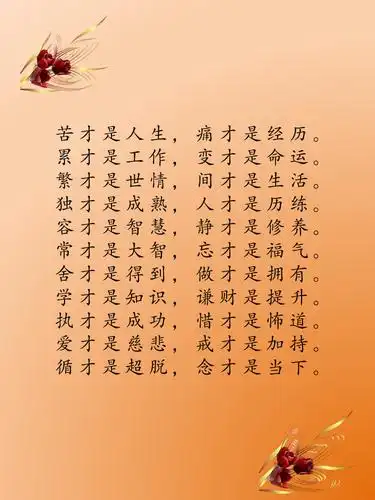 苦才是人生，痛才是经历。
累才是工作，变才是命运。
繁才是世情，间才是生活。
独才是成熟，人才是历练。
容才是智慧，静才是修养。
常才是大智，忘才是福气。
舍才是得到，做才是拥有。
学才是知识，谦财是提升。
执才是成功，惜才是怖道。
爱才是慈悲，戒才是加持。
循才是超脱，念才是当下。